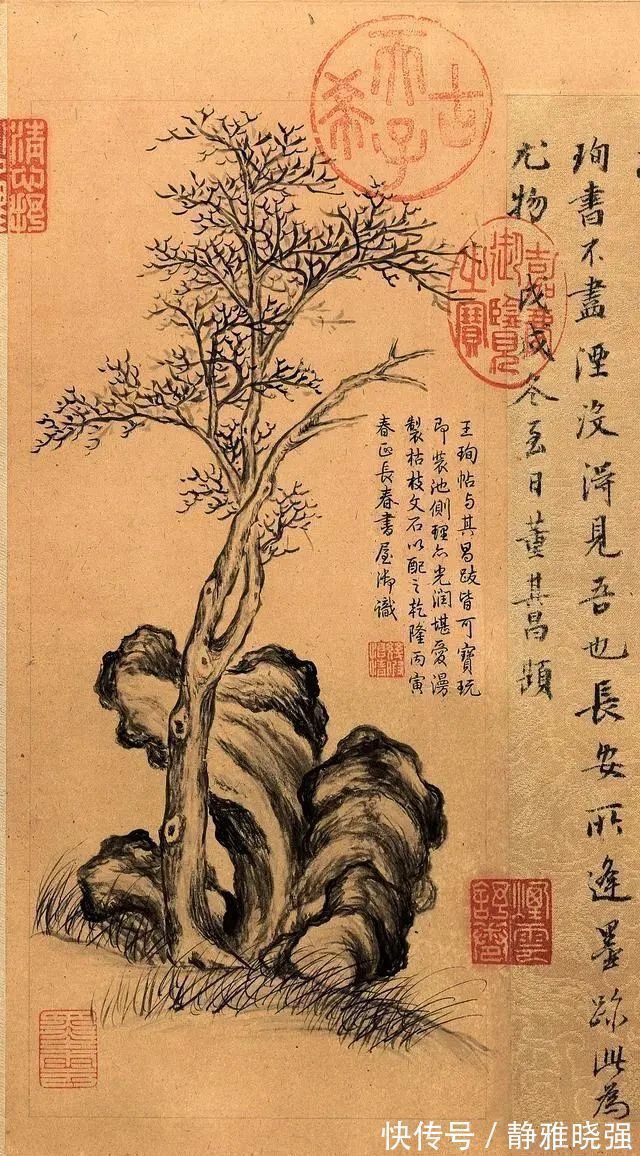 古希天子
嘉慶御覽之寶
珣書不盡湮沒得見吾也長安所逢墨跡此為
尤物戊戌冬至日董其昌題
王珣帖与其昌跋皆可寶玩
即裝池側理亦光潤堪愛漫
製枯枝文石以配之乾隆丙寅
春正長春書屋御識
快传号 / 静雅晓强